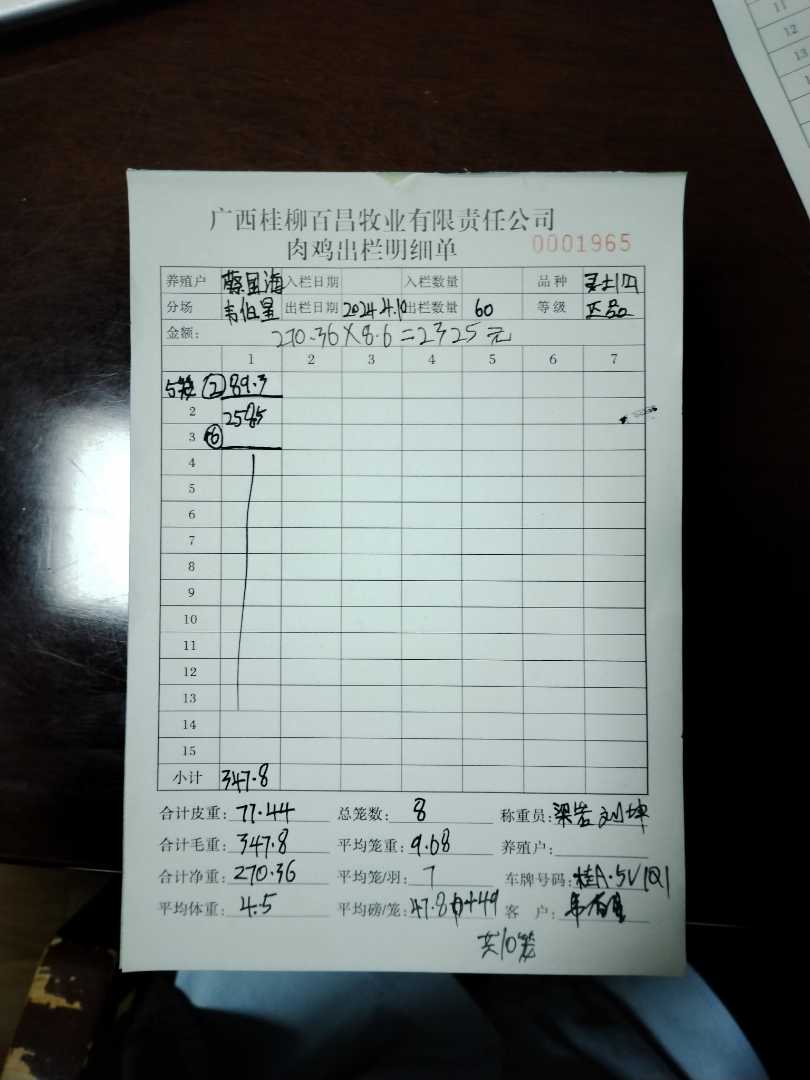 广西桂柳百昌牧业有限责任公司
肉鸡出栏明细单 0001965
养殖户 蔡显海 入栏日期 入栏数量 品种
分场 韦伯星 出栏日期 2024.4.10 出栏数量 60 等级 正品
金额: 270.36×8.6=2325元
1 2 3 4 5 6 7
5笼 ② 89.3
2 258.5
3 ⑥
4
5
6
7
8
9
10
11
12
13
14
15
小计 347.8
合计皮重: 77.44 总笼数: 8 称重员: 梁岩 刘坤
合计毛重: 347.8 平均笼重: 9.68 养殖户:
合计净重: 270.36 平均笼/羽: 7 车牌号码: 桂A·5V1Q1
平均体重: 4.5 平均磅/笼: 客户:
共10笼
11
12
13